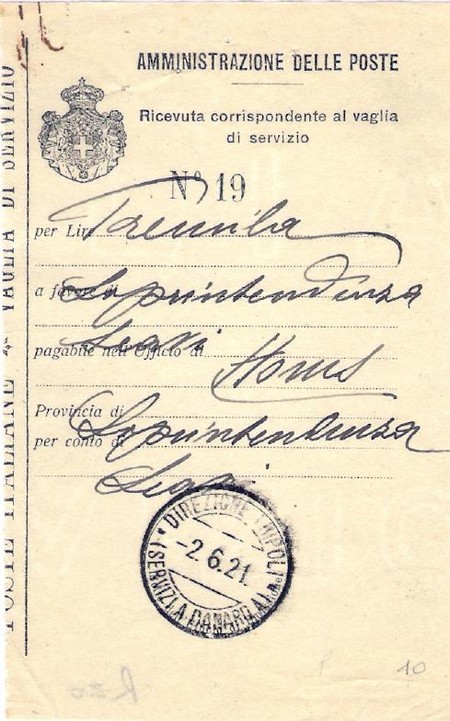 AMMINISTRAZIONE DELLE POSTE
Ricevuta corrispondente al vaglia
di servizio
Nº 19
per Lire Tremila
a favore di Soprintendenza
Scavi
pagabile nell'Ufficio di Homs
Provincia di
per conto di Soprintendenza
Scavi
DIREZIONE TRIPOLI
-2.6.21.
(SERVIZI A DANARO)
POSTE ITALIANE * VAGLIA DI SERVIZIO
10